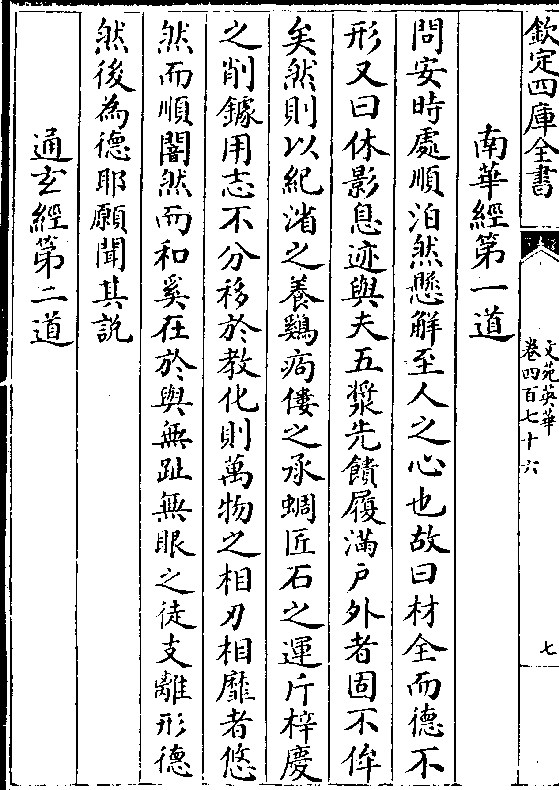 欽定四庫全書
文苑英華
卷四百七十六
七
南華經第一道
問安時處順泊然懸解至人之心也故曰材全而德不
形又曰休影息迹與夫五漿先饋履滿戶外者固不侔
矣然則以紀渻之養鷄痀僂之承蜩匠石之運斤梓慶
之削鐻用志不分移於教化則萬物之相刃相靡者悠
然而順闇然而和奚在於與無趾無眼之徒支離形德
然後為德耶願聞其説
通玄經第二道